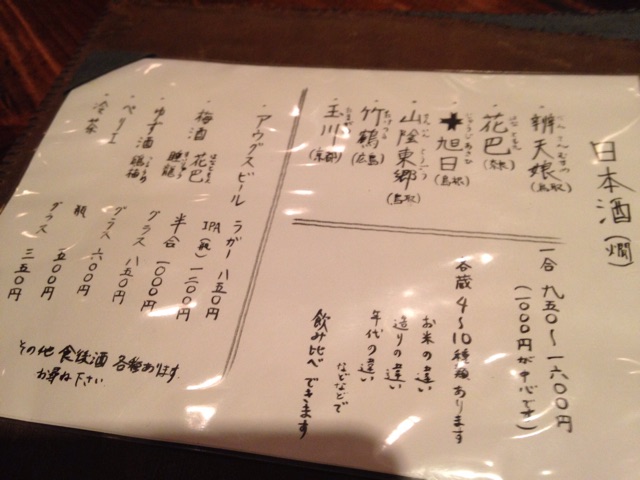 日本酒(燗)
・辨天娘(鳥取)
べんてんむすめ
・花巴(奈良)
はなともえ
・★旭日(島根)
じゅうじあさひ
・山陰東郷(鳥取)
さんいんとうごう
・竹鶴(広島)
たけつる
・玉川(京都)
たまがわ
一合 九五〇〜一六〇〇円
(一〇〇〇円が中心です)
各蔵 4〜10種類あります
お米の違い
造りの違い
年代の違い
などなどで
飲み比べできます
・アウグスビール
ラガー 八五〇円
JPA(瓶) 一二〇〇円
・梅酒 花巴
はなともえ
半合 一〇〇〇円
・ゆず酒
グラス 八五〇円
・ペリエ
瓶 六〇〇円
グラス 五〇〇円
・冷茶
グラス 三五〇円
その他 食後酒 各種あります
お尋ね下さい